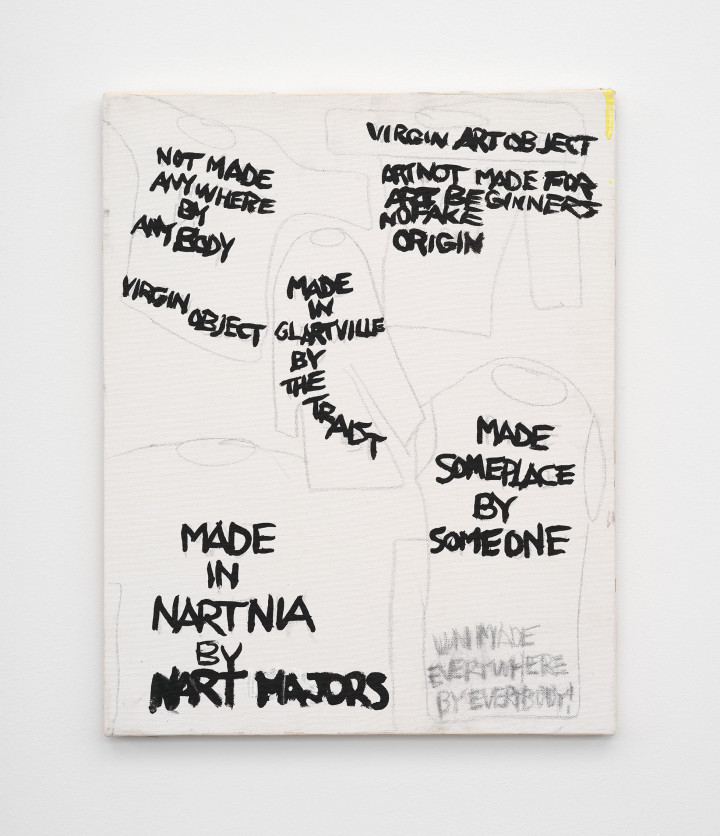 NOT MADE
ANYWHERE
BY
ANYBODY
VIRGIN OBJECT
VIRGIN ART OBJECT
ART NOT MADE FOR
ART BEGINNERS
NO FAKE
ORIGIN
MADE
IN
GLARTVILLE
BY
THE
TRAIST
MADE
SOMEPLACE
BY
SOMEONE
MADE
IN
NARTNIA
BY
NART MAJORS
UN MADE
EVERYWHERE
BY EVERYBODY!